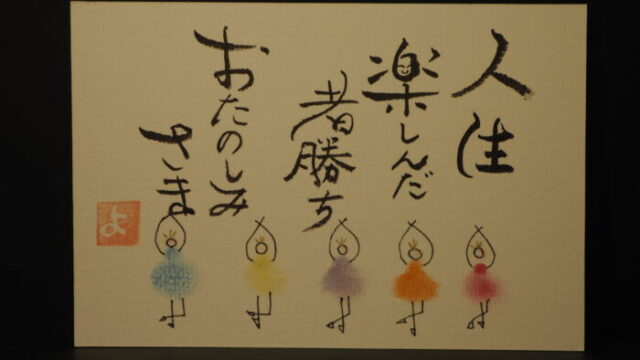 人生
楽しんだ
者勝ち
おたのしみ
さま
よ